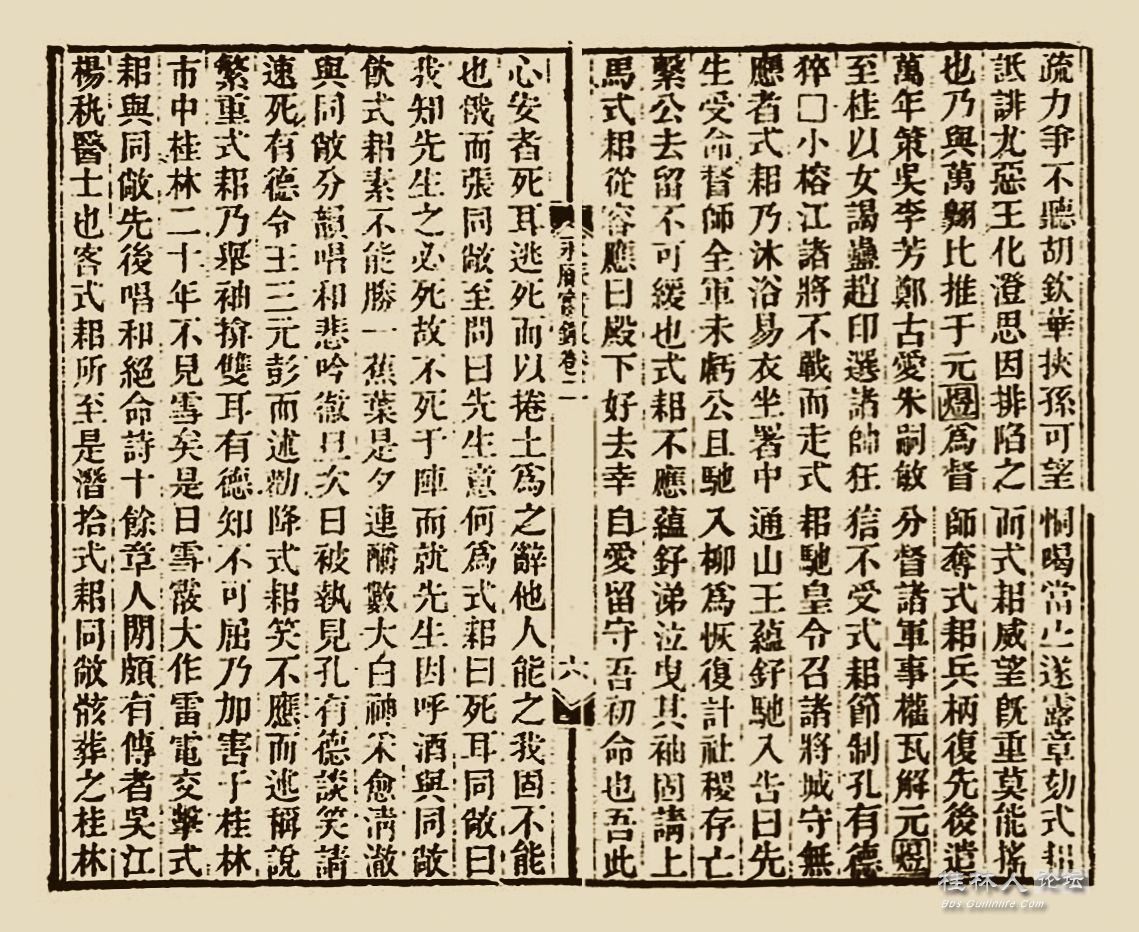 疏力爭不聽胡欽華挾孫可望恫喝當止遂露章劾式耜
詆誹尤惡王化澄思因排陷之而式耜威望旣重莫能搖
也乃與萬翺比推于元煜爲督師奪式耜兵柄復先後遣
萬年策吳李芳鄭古愛朱嗣敏分督諸軍事權瓦解元煜
至桂以女謁蠱趙印選諸帥狂信不受式耜節制孔有德
猝□小榕江諸將不戰而走式耜馳皇令召諸將城守無
應者式耜乃沐浴易衣坐署中通山王蘊釨馳入告曰先
生受命督師全軍未虧公且馳入柳爲恢復計社稷存亡
繫公去留不可緩也式耜不應蘊釨涕泣曳其袖固請上
馬式耜從容應曰殿下好去幸自愛留守吾初命也吾此
永曆實錄卷二
六
心安者死耳逃死而以捲土爲之辭他人能之我固不能
也俄而張同敞至問曰先生意何爲式耜曰死耳同敞曰
我知先生之必死故不死于陣而就先生因呼酒與同敞
飲式耜素不能勝一蕉葉是夕連酹數大白神采愈淸澈
與同敞分韻唱和悲吟徹旦次日被執見孔有德談笑請
速死有德令王三元彭而述勸降式耜笑不應而述稱說
繁重式耜乃舉袖揜雙耳有德知不可屈乃加害于桂林
市中桂林二十年不見雪矣是日雪霰大作雷電交擊式
耜與同敞先後唱和絕命詩十餘章人閒頗有傳者吳江
楊秇醫士也客式耜所至是潛拾式耜同敞骸葬之桂林
桂林人论坛
Bbs.Guilinlife.Com